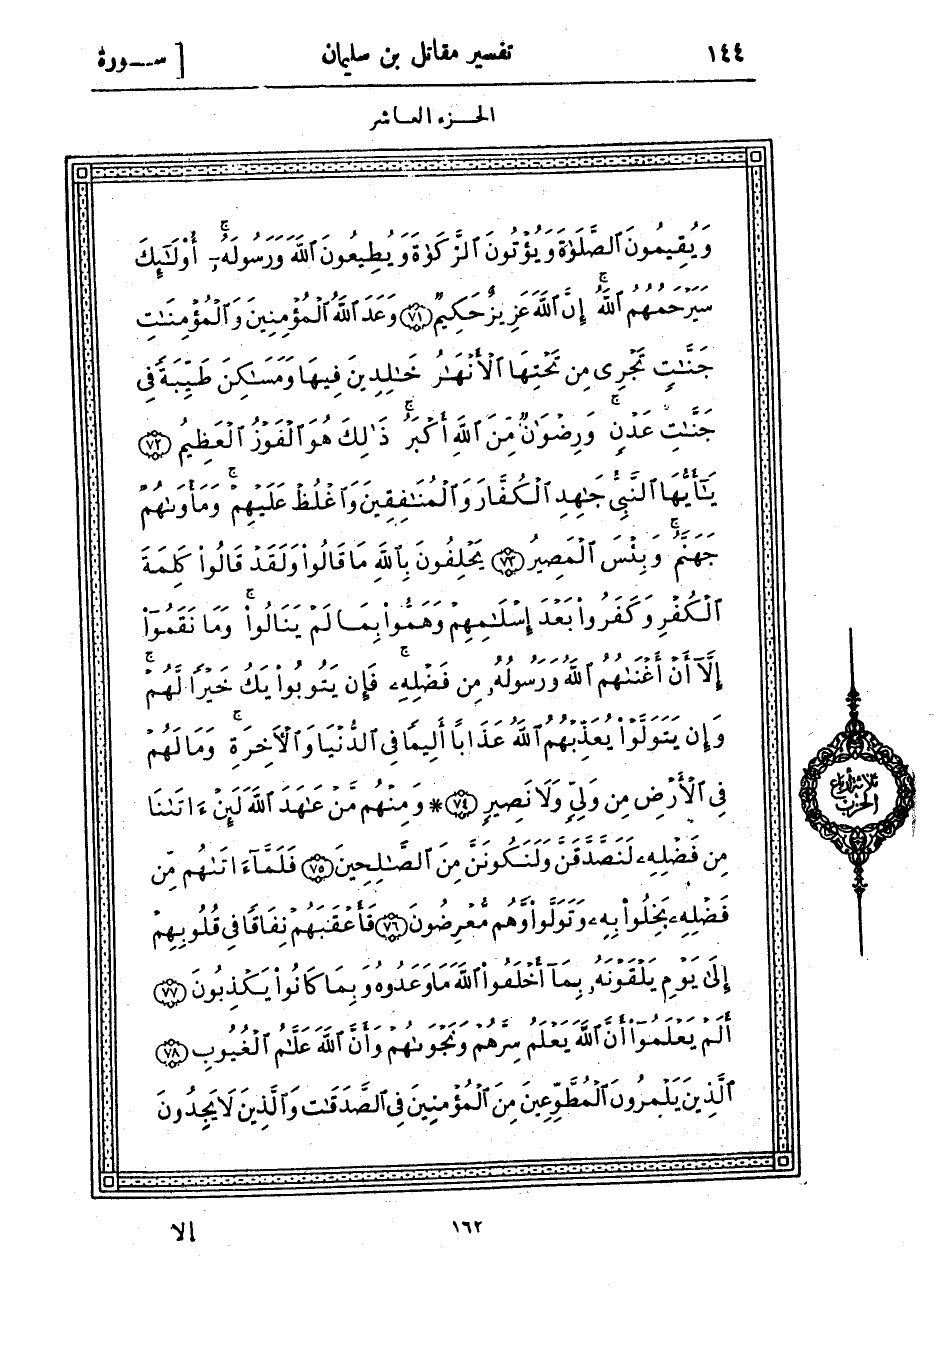 ١٤٤ تفسير مقاتل بن سليمان [ ســـورة
الجـــزء العـاشر
وَيُقِيمُونَ ٱلصَّلَوٰةَ وَيُؤْتُونَ ٱلزَّكَوٰةَ وَيُطِيعُونَ ٱللَّهَ وَرَسُولَهُۥٓ ۚ أُوْلَٰٓئِكَ
سَيَرْحَمُهُمُ ٱللَّهُ ۗ إِنَّ ٱللَّهَ عَزِيزٌ حَكِيمٌ ﴿٧١﴾ وَعَدَ ٱللَّهُ ٱلْمُؤْمِنِينَ وَٱلْمُؤْمِنَٰتِ
جَنَّٰتٍ تَجْرِى مِن تَحْتِهَا ٱلْأَنْهَٰرُ خَٰلِدِينَ فِيهَا وَمَسَٰكِنَ طَيِّبَةً فِى
جَنَّٰتِ عَدْنٍ ۚ وَرِضْوَٰنٌ مِّنَ ٱللَّهِ أَكْبَرُ ۚ ذَٰلِكَ هُوَ ٱلْفَوْزُ ٱلْعَظِيمُ ﴿٧٢﴾
يَٰٓأَيُّهَا ٱلنَّبِىُّ جَٰهِدِ ٱلْكُفَّارَ وَٱلْمُنَٰفِقِينَ وَٱغْلُظْ عَلَيْهِمْ ۚ وَمَأْوَىٰهُمْ
جَهَنَّمُ ۖ وَبِئْسَ ٱلْمَصِيرُ ﴿٧٣﴾ يَحْلِفُونَ بِٱللَّهِ مَا قَالُواْ وَلَقَدْ قَالُواْ كَلِمَةَ
ٱلْكُفْرِ وَكَفَرُواْ بَعْدَ إِسْلَٰمِهِمْ وَهَمُّواْ بِمَا لَمْ يَنَالُواْ ۚ وَمَا نَقَمُوٓاْ
إِلَّآ أَنْ أَغْنَىٰهُمُ ٱللَّهُ وَرَسُولُهُۥ مِن فَضْلِهِۦ ۚ فَإِن يَتُوبُواْ يَكُ خَيْرًا لَّهُمْ ۖ
وَإِن يَتَوَلَّوْاْ يُعَذِّبْهُمُ ٱللَّهُ عَذَابًا أَلِيمًا فِى ٱلدُّنْيَا وَٱلْأَخِرَةِ ۚ وَمَا لَهُمْ
فِى ٱلْأَرْضِ مِن وَلِىٍّ وَلَا نَصِيرٍ ﴿٧٤﴾ * وَمِنْهُم مَّنْ عَٰهَدَ ٱللَّهَ لَئِنْ ءَاتَىٰنَا
مِن فَضْلِهِۦ لَنَصَّدَّقَنَّ وَلَنَكُونَنَّ مِنَ ٱلصَّٰلِحِينَ ﴿٧٥﴾ فَلَمَّآ ءَاتَىٰهُم مِّن
فَضْلِهِۦ بَخِلُواْ بِهِۦ وَتَوَلَّواْ وَّهُم مُّعْرِضُونَ ﴿٧٦﴾ فَأَعْقَبَهُمْ نِفَاقًا فِى قُلُوبِهِمْ
إِلَىٰ يَوْمِ يَلْقَوْنَهُۥ بِمَآ أَخْلَفُواْ ٱللَّهَ مَا وَعَدُوهُ وَبِمَا كَانُواْ يَكْذِبُونَ ﴿٧٧﴾
أَلَمْ يَعْلَمُوٓاْ أَنَّ ٱللَّهَ يَعْلَمُ سِرَّهُمْ وَنَجْوَىٰهُمْ وَأَنَّ ٱللَّهَ عَلَّٰمُ ٱلْغُيُوبِ ﴿٧٨﴾
ٱلَّذِينَ يَلْمِزُونَ ٱلْمُطَّوِّعِينَ مِنَ ٱلْمُؤْمِنِينَ فِى ٱلصَّدَقَٰتِ وَٱلَّذِينَ لَا يَجِدُونَ
ثلاثة أرباع
الحزب
١٦٢
إلا